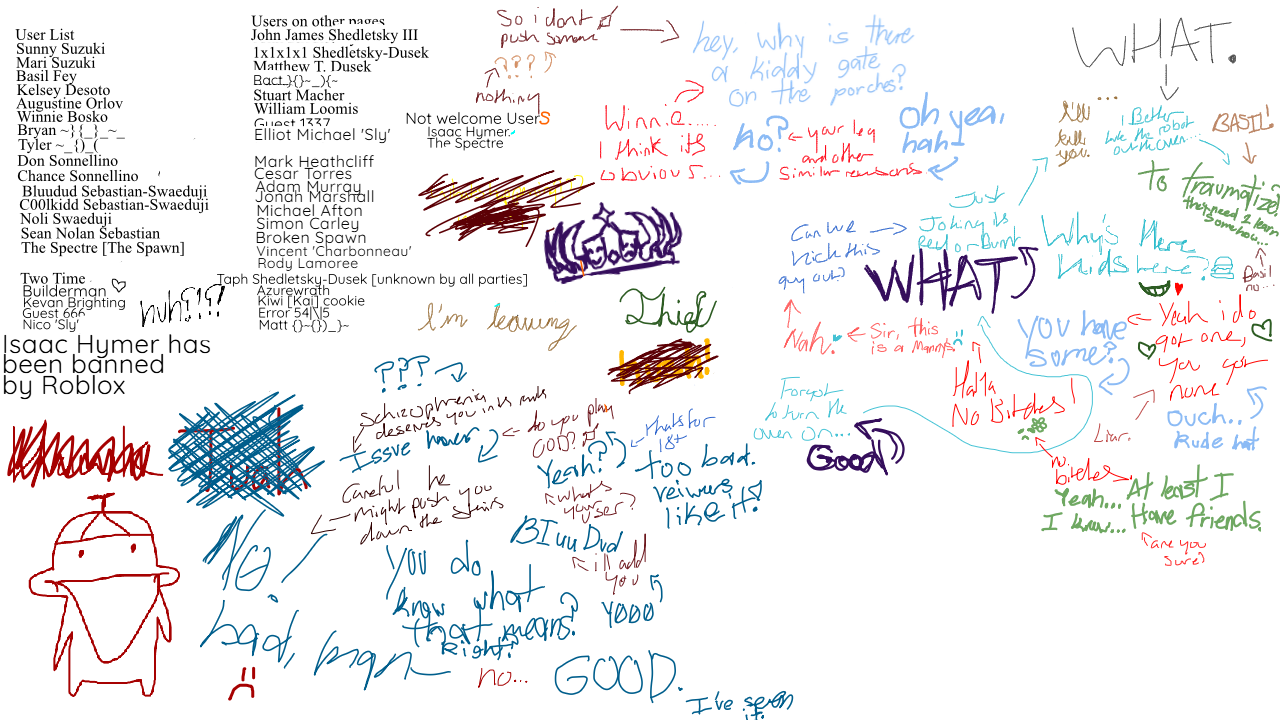 User List
Sunny Suzuki
Mari Suzuki
Basil Fey
Kelsey Desoto
Augustine Orlov
Winnie Bosko
Bryan ~}{_}_~_
Tyler ~_()_(
Don Sonnellino
Chance Sonnellino
Bluudud Sebastian-Swaeduji
C00lkidd Sebastian-Swaeduji
Noli Swaeduji
Sean Nolan Sebastian
The Spectre [The Spawn]
Two Time
Builderman ♡
Kevan Brighting
Guest 666
Nico 'Sly'
huh?!?!
Isaac Hymer has
been banned
by Roblox
Users on other pages
John James Shedletsky III
1x1x1x1 Shedletsky-Dusek
Matthew T. Dusek
Bact_}{}~_){~
Stuart Macher
William Loomis
Guest 1337
Elliot Michael 'Sly'
Mark Heathcliff
Cesar Torres
Adam Murray
Jonah Marshall
Michael Afton
Simon Carley
Broken Spawn
Vincent 'Charbonneau'
Rody Lamoree
Taph Shedletsky-Dusek [unknown by all parties]
Azurewrath
Kiwi [Kai] cookie
Error 54|\|5
Matt {}~{}}_}~
Not welcome Users
Isaac Hymer.
The Spectre
So i dont
push someone
????
nothing
hey, why is there
a kiddy gate
on the porches?
Winnie.....
I think its
obvious...
no?
your leg
and other
Similar reasons
Oh yea,
hah-
WHAT.
I'll
kill
you.
...
I Better
BASIL!
to traumatize?
they need 2 learn
somehow...
Basil
no...
Just
Joking its
Can we
kick this
guy out?
WHAT
Why's there
kids here?
Nah.
Sir, this
YOU have
some?
Yeah i do
got one,
you got
none
Ouch..
Rude hat
HaHa
No Bitches!
Liar.
no
bitches.
Yeah... At least I
I know... Have friends.
are you
sure?
Forgot
to turn the
oven on...
Good
I'm leaving
Thief
???
Schizophrenia
Issue
do you play
GOD?
Yeah?
thats for
18+
too bad.
like it!
what's
your user?
BIuuDud
ill add
you
YOOO
Careful he
might push you
down the stairs
NO.
bad, man
you do
know what
that means?
Right?
no...
GOOD.
I've seen
it.